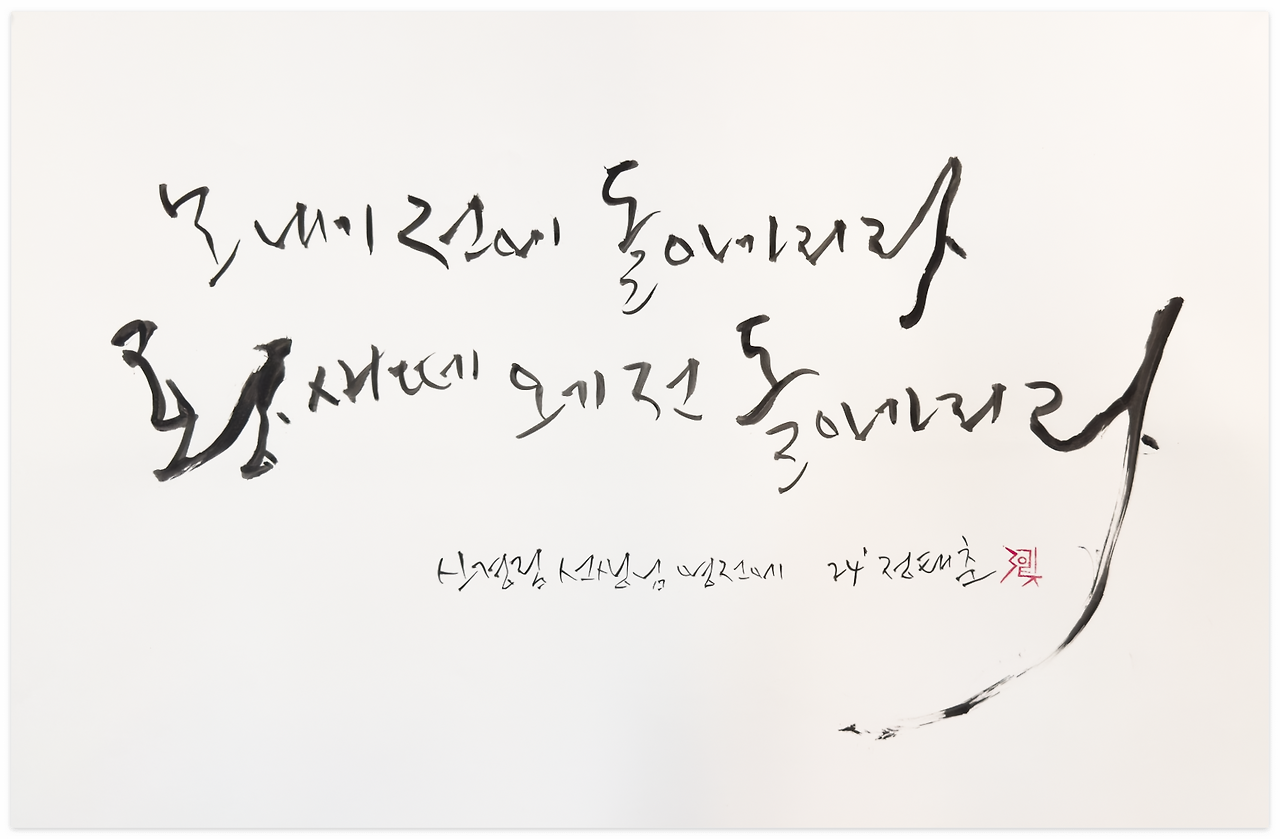 모내기 전에 돌아가리라
황새떼 오기 전 돌아가리라
신경림 선생님 영전에 24' 정태춘